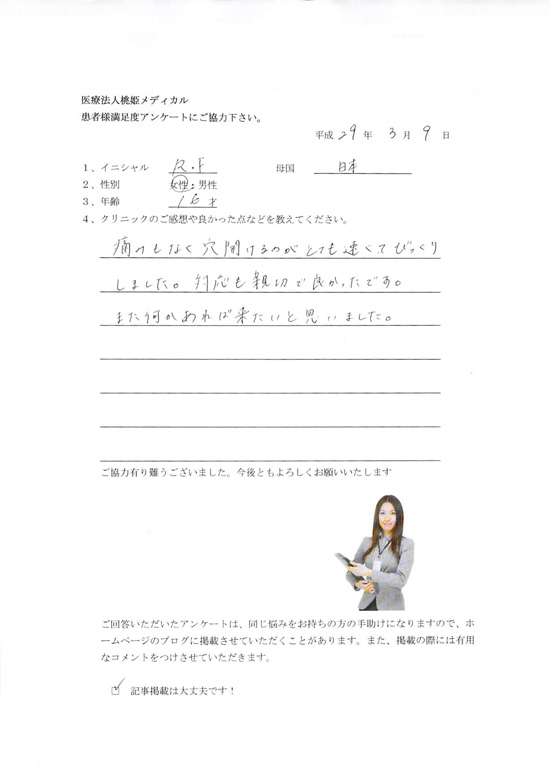 医療法人桃姫メディカル
患者様満足度アンケートにご協力下さい。
平成 29 年 3 月 9 日
1、イニシャル R.F 母国 日本
2、性別 女性・男性
3、年齢 16才
4、クリニックのご感想や良かった点などを教えてください。
痛みもなく穴開けるのがとても速くてびっくり
しました。対応も親切で良かったです。
また何かあれば来たいと思いました。
ご協力有り難うございました。今後ともよろしくお願いいたします
ご回答いただいたアンケートは、同じ悩みをお持ちの方の手助けになりますので、ホ
ームページのブログに掲載させていただくことがあります。また、掲載の際には有用
なコメントをつけさせていただきます。
☑ 記事掲載は大丈夫です！